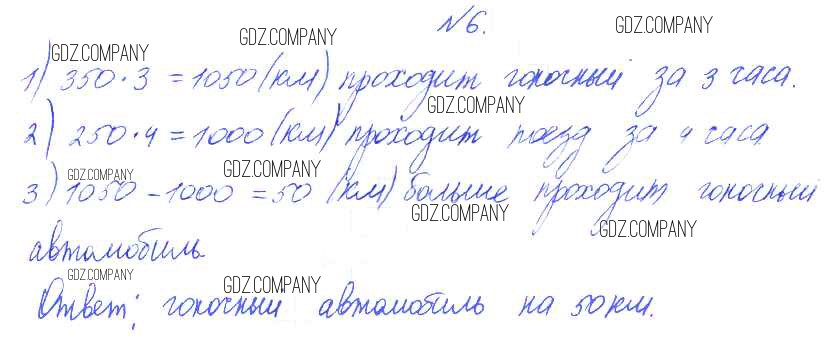 №6.
GDZ.COMPANY GDZ.COMPANY GDZ.COMPANY
1) 350 · 3 = 1050 (км) проходит гоночный за 3 часа.
GDZ.COMPANY
2) 250 · 4 = 1000 (км) проходит поезд за 4 часа
GDZ.COMPANY GDZ.COMPANY
3) 1050 - 1000 = 50 (км) больше проходит гоночный
GDZ.COMPANY GDZ.COMPANY
автомобиль
GDZ.COMPANY GDZ.COMPANY
Ответ: гоночный автомобиль на 50 км.